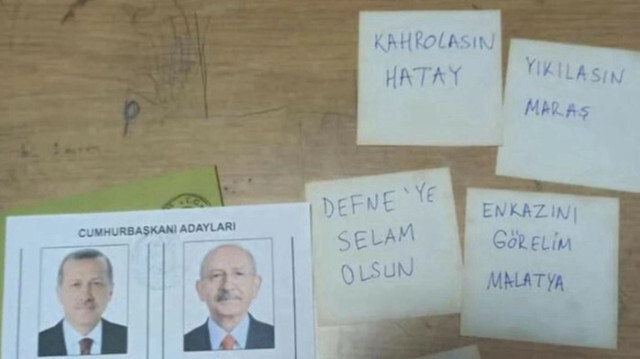 KAHROLASIN
HATAY
YIKILASIN
MARAŞ
DEFNE'YE
SELAM
OLSUN
ENKAZINI
GÖRELİM
MALATYA
CUMHURBAŞKANI ADAYLARI